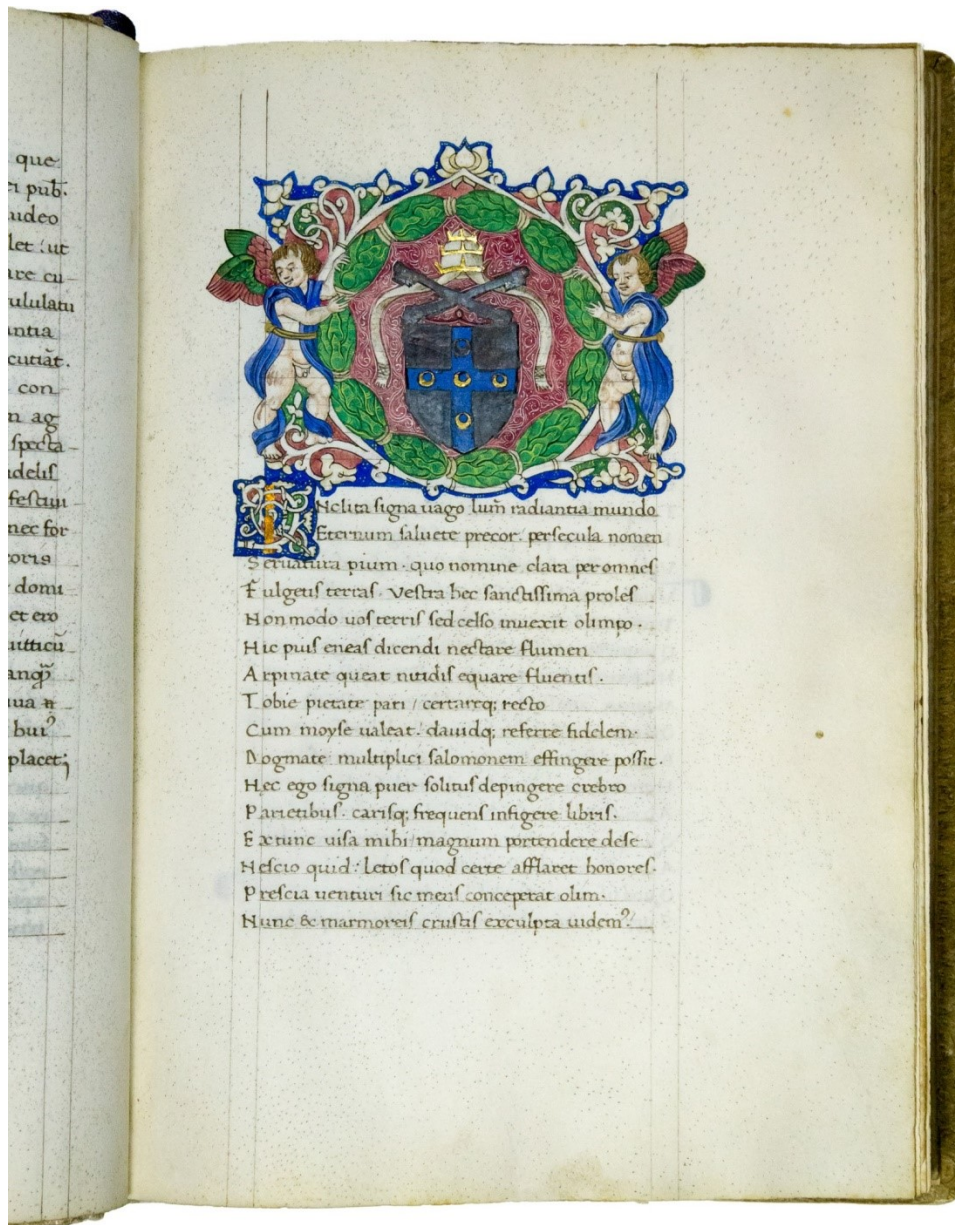 que
pub.
udeo
let : ut
are cu
ululatu
ntia
cutiāt.
con
m ag
specta
delis
festiui
nec for
coris
domi
et ero
anqꝫ
ua
placet;
INclita signa uago lum̄ radiantia mundo
Eternum saluete precor. persecula nomen
Seruatura pium. quo nomine clara per omnes
Fulgetis terras. vestra hec sanctissima proles
Non modo uos terris sed celso inuexit olimpo.
Hic pius eneas dicendi nectare flumen
Arpinate queat nitidis equare fluentis.
Tobie pietate pari / certareqꝫ recto
Cum moyse ualeat. dauidqꝫ referre fidelem.
Dogmate multiplici salomonem effingere possit.
Hec ego signa puer solitus depingere crebro
Parietibus. carisqꝫ frequens infigere libris.
Ex tunc uisa mihi magnum portendere dese
Nescio quid: letos quod certe afflaret honores.
Prescia uenturi sic mens conceperat olim.
Nunc & marmoreis crustis exculpta uidemꝰ